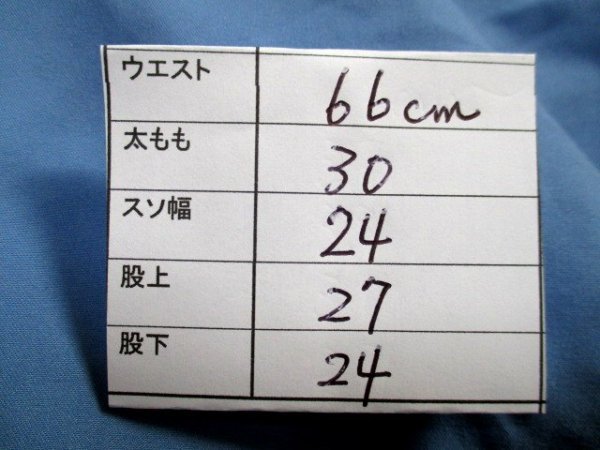 ウエスト 66cm
太もも 30
スソ幅 24
股上 27
股下 24